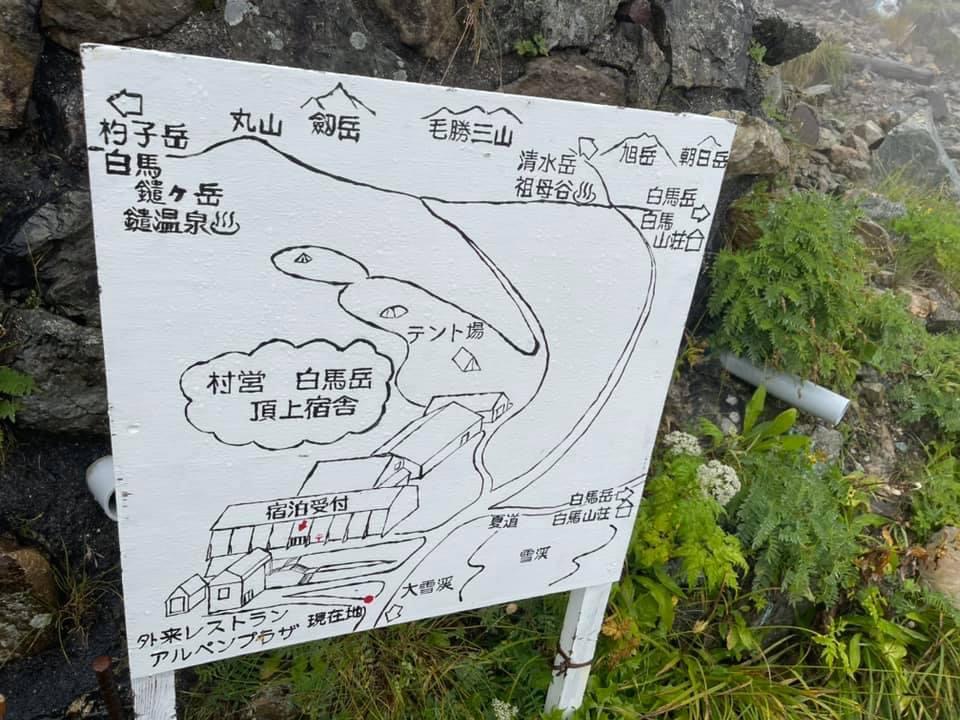 杓子岳
白馬
鑓ヶ岳
鑓温泉
丸山
劔岳
毛勝三山
清水岳
祖母谷
旭岳
朝日岳
白馬岳
白馬
山荘
テント場
村営 白馬岳
頂上宿舎
宿泊受付
白馬岳
夏道 白馬山荘
雪渓
大雪渓
外来レストラン
アルペンプラザ 現在地